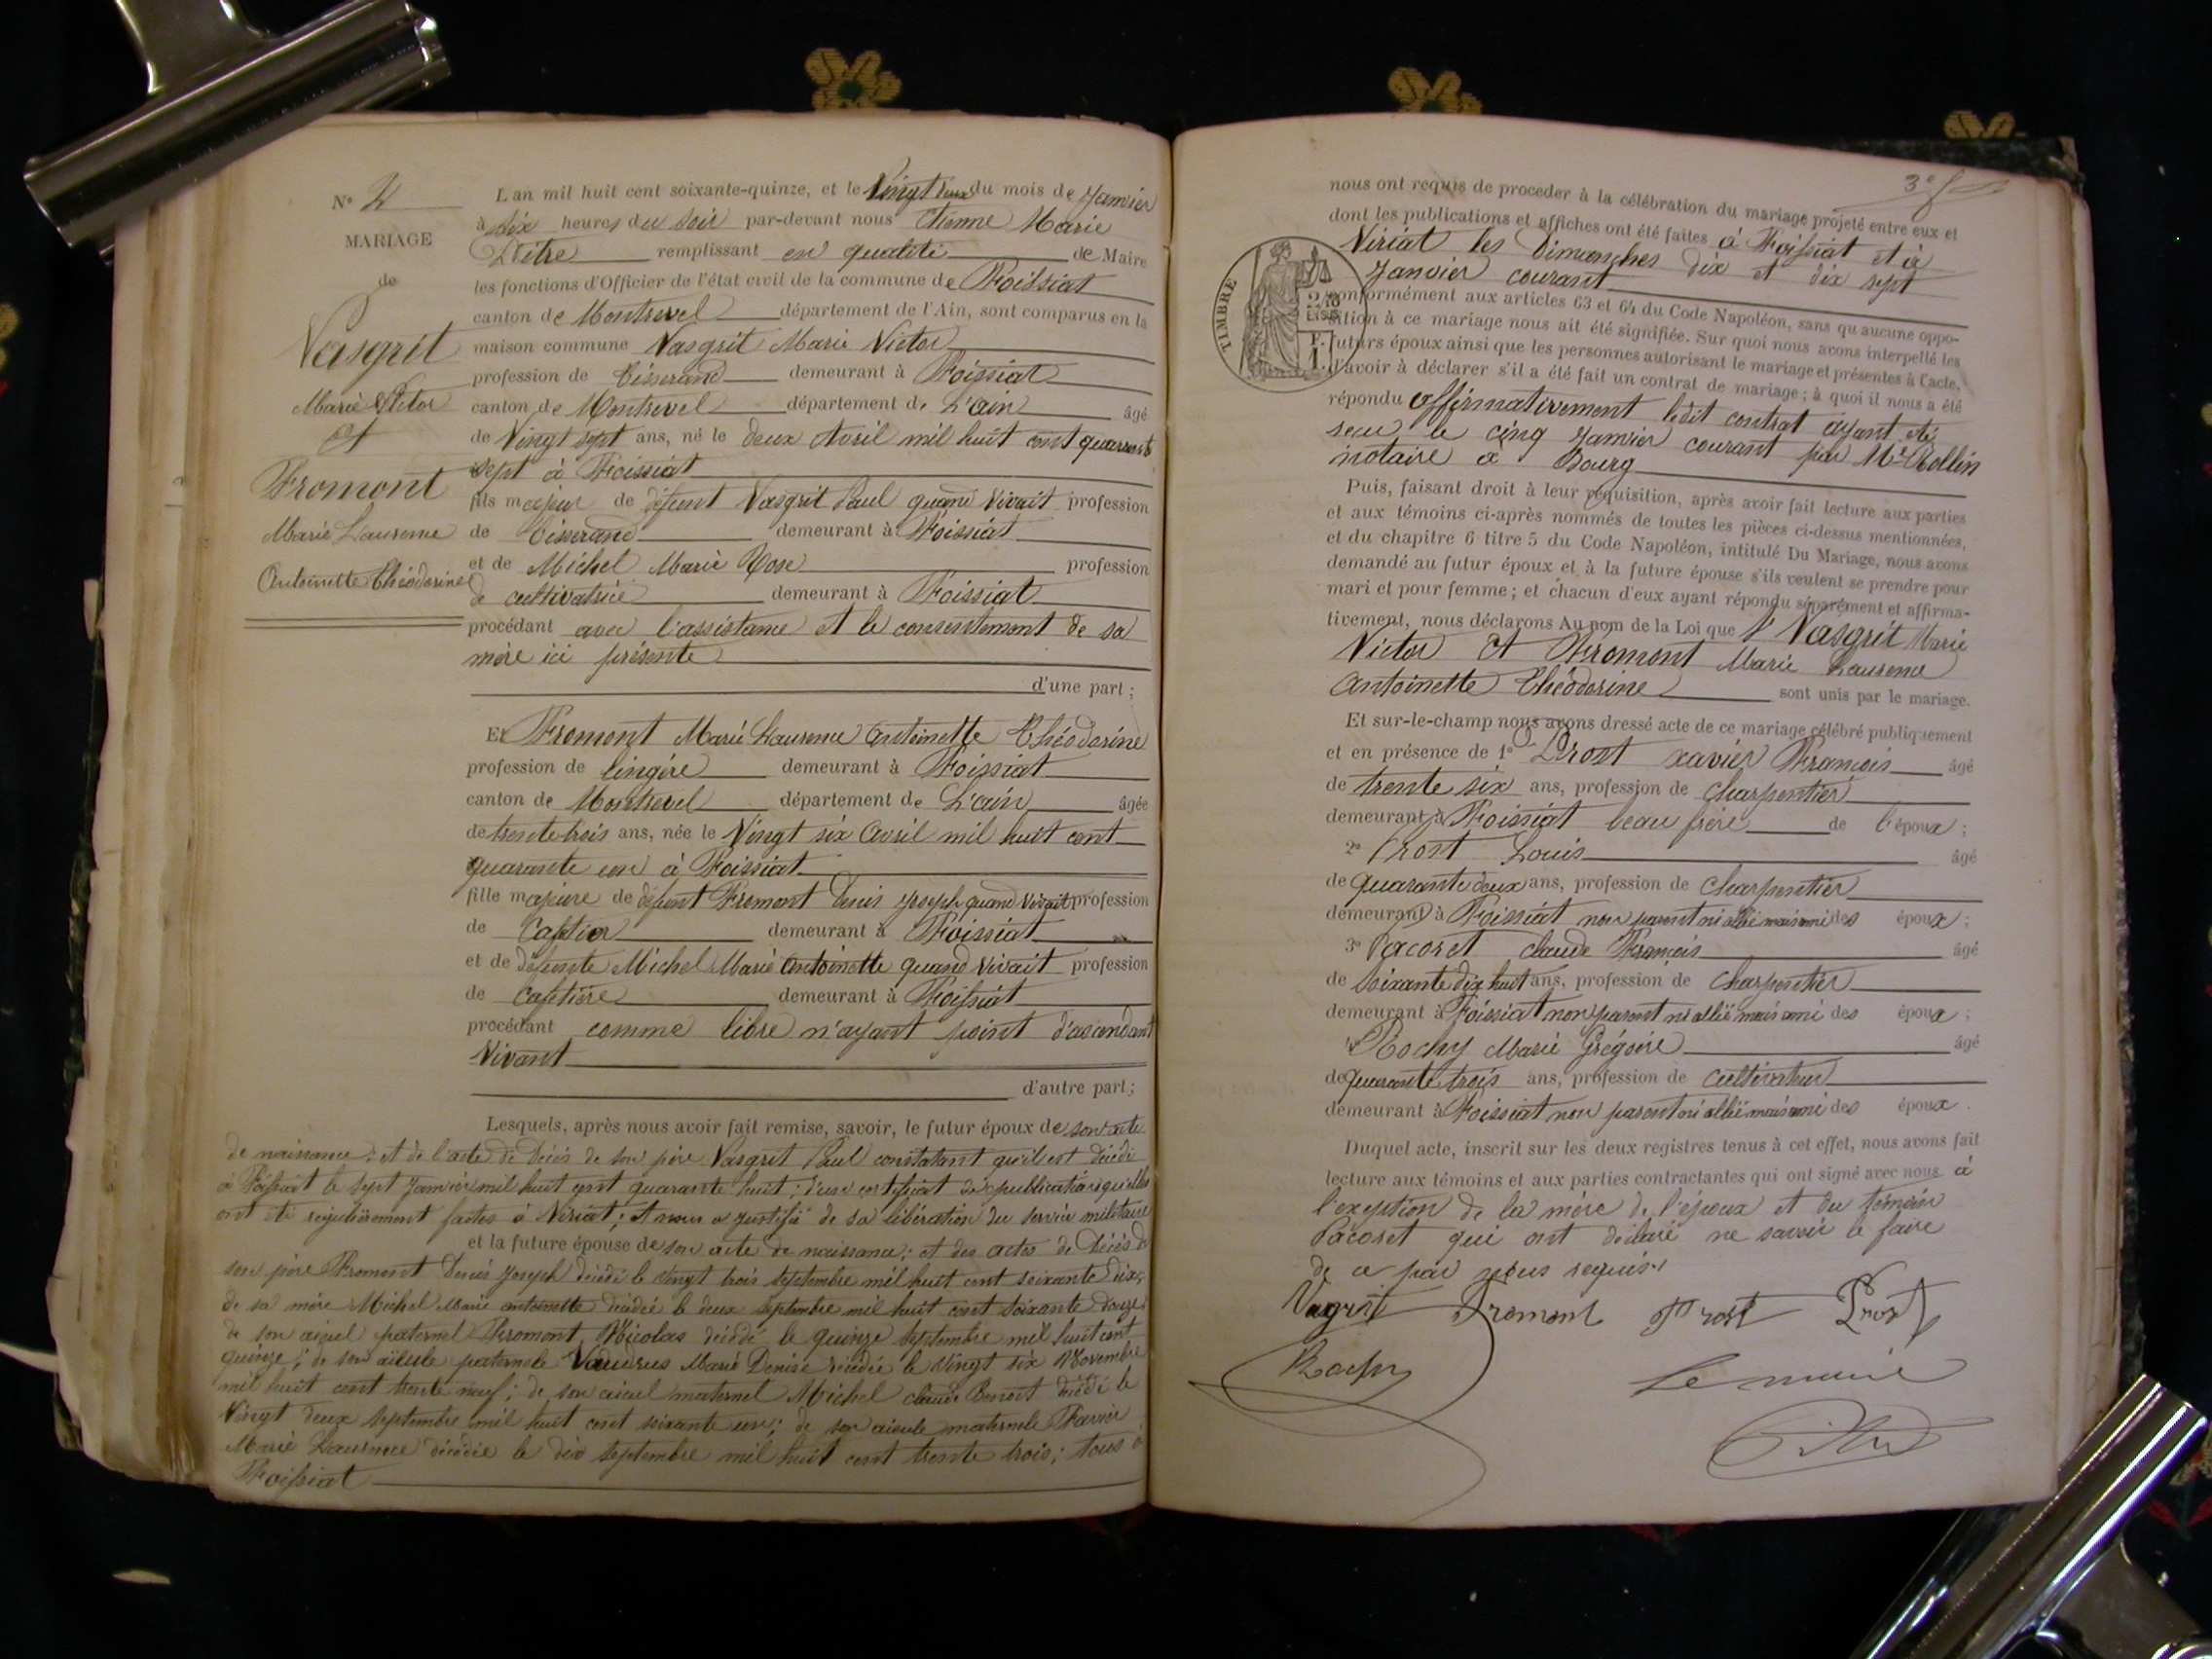 N° 2
MARIAGE
de
Vasgrit
Marie Victor
et
Fromont
Marie Laurence
Antoinette Théodorine
L'an mil huit cent soixante-quinze, et le Vingt deux du mois de Janvier
à six heures du soir par-devant nous Etienne Marie
remplissant en qualité de Maire
les fonctions d'Officier de l'état civil de la commune de Foissiat
canton de Montrevel département de l'Ain, sont comparus en la
maison commune Vasgrit Marie Victor
profession de tisserand demeurant à Foissiat
canton de Montrevel département de L'ain âgé
de Vingt sept ans, né le deux Avril mil huit cent quarante
sept à Foissiat
fils majeur de défunt Vasgrit Paul quand vivait profession
de tisserand demeurant à Foissiat
et de Michel Marie Rose profession
de cultivatrice demeurant à Foissiat
procédant avec l'assistance et le consentement de sa
mère ici présente
d'une part ;
Et Fromont Marie Laurence Antoinette Théodorine
profession de lingère demeurant à Foissiat
canton de Montrevel département de L'ain âgée
de trente trois ans, née le Vingt six Avril mil huit cent
quarante un à Foissiat
fille majeure de défunt Fromont Denis Joseph quand vivait profession
de Caftier demeurant à Foissiat
et de défunte Michel Marie Antoinette quand vivait profession
de caftière demeurant à Foissiat
procédant comme libre n'ayant point d'ascendant
Vivant
d'autre part ;
Lesquels, après nous avoir fait remise, savoir, le futur époux de son acte
de naissance ; et de l'acte de décès de son père Vasgrit Paul constatant qu'il est décédé
à Foissiat le sept Janvier mil huit cent quarante huit ; d'un certificat de publications qu'elles
ont été régulièrement faites à Viriat ; et nous a justifié de sa libération du service militaire
et la future épouse de son acte de naissance ; et des actes de décès de
son père Fromont Denis Joseph décédé le vingt trois septembre mil huit cent soixante dix ;
de sa mère Michel Marie antoinette décédée le deux septembre mil huit cent soixante douze ;
de son aieul paternel Fromont Nicolas décédé le quinze septembre mil huit cent
quinze ; de son aïeule paternelle Marie Denise décédée le vingt six Novembre
mil huit cent trente neuf ; de son aieul maternel Michel claude Benoit décédé le
Vingt deux septembre mil huit cent soixante un ; de son aieule maternelle
Marie Laurence décédée le dix septembre mil huit cent trente trois ; tous à
Foissiat
nous ont requis de procéder à la célébration du mariage projeté entre eux et
dont les publications et affiches ont été faites à Foissiat et à
Viriat les Dimanches dix et dix sept
Janvier courant
TIMBRE
conformément aux articles 63 et 64 du Code Napoléon, sans qu'aucune oppo-
sition à ce mariage nous ait été signifiée. Sur quoi nous avons interpellé les
futurs époux ainsi que les personnes autorisant le mariage et présentes à l'acte,
d'avoir à déclarer s'il a été fait un contrat de mariage ; à quoi il nous a été
répondu affirmativement ledit contrat ayant été
recu le cinq Janvier courant par Me Rollin
notaire à Bourg
Puis, faisant droit à leur réquisition, après avoir fait lecture aux parties
et aux témoins ci-après nommés de toutes les pièces ci-dessus mentionnées,
et du chapitre 6 titre 5 du Code Napoléon, intitulé Du Mariage, nous avons
demandé au futur époux et à la future épouse s'ils veulent se prendre pour
mari et pour femme ; et chacun d'eux ayant répondu séparément et affirma-
tivement, nous déclarons Au nom de la Loi que Vasgrit Marie
Victor et Fromont Marie Laurence
Antoinette Théodorine sont unis par le mariage.
Et sur-le-champ nous avons dressé acte de ce mariage célébré publiquement
et en présence de 1° Prost xavier François âgé
de trente six ans, profession de charpentier
demeurant à Foissiat beau frère de l'époux ;
2° Prost Louis âgé
de quarante deux ans, profession de charpentier
demeurant à Foissiat non parent ni allié mais ami des époux ;
3° Pacoret claude François âgé
de soixante dix huit ans, profession de charpentier
demeurant à Foissiat non parent ni allié mais ami des époux ;
Rochy Marie Grégoire âgé
de quarante trois ans, profession de cultivateur
demeurant à Foissiat non parent ni allié mais ami des époux.
Duquel acte, inscrit sur les deux registres tenus à cet effet, nous avons fait
lecture aux témoins et aux parties contractantes qui ont signé avec nous à
l'exception de la mère de l'époux et du témoin
Pacoret qui ont déclaré ne savoir le faire
de ce par nous requis.
Vagrit Fromont Prost Prost
Rochy Le maire